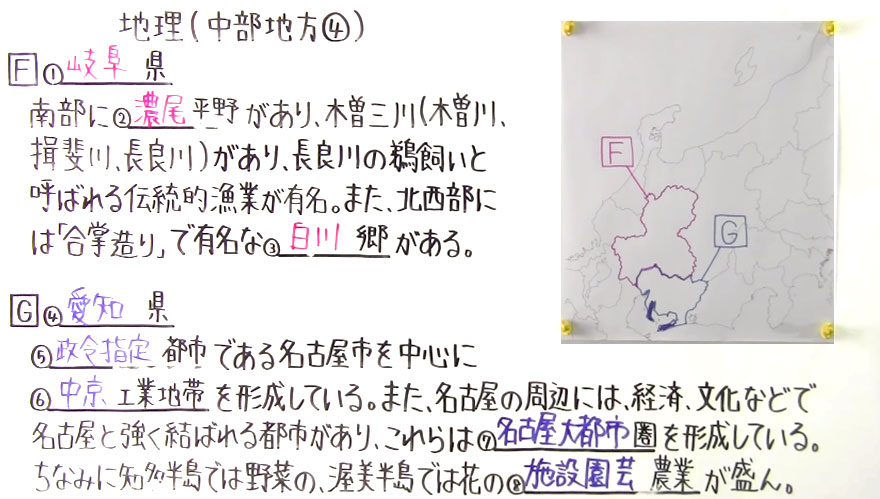 地理(中部地方④)
F ①岐阜 県
南部に②濃尾平野があり、木曽三川(木曽川、
揖斐川、長良川)があり、長良川の鵜飼いと
呼ばれる伝統的漁業が有名。また、北西部に
は「合掌造り」で有名な③白川 郷がある。
G ④愛知 県
⑤政令指定 都市である名古屋市を中心に
⑥中京 工業地帯を形成している。また、名古屋の周辺には、経済、文化などで
名古屋と強く結ばれる都市があり、これらは⑦名古屋大都市圏を形成している。
ちなみに知多半島では野菜の、渥美半島では花の⑧施設園芸 農業が盛ん。
F
G